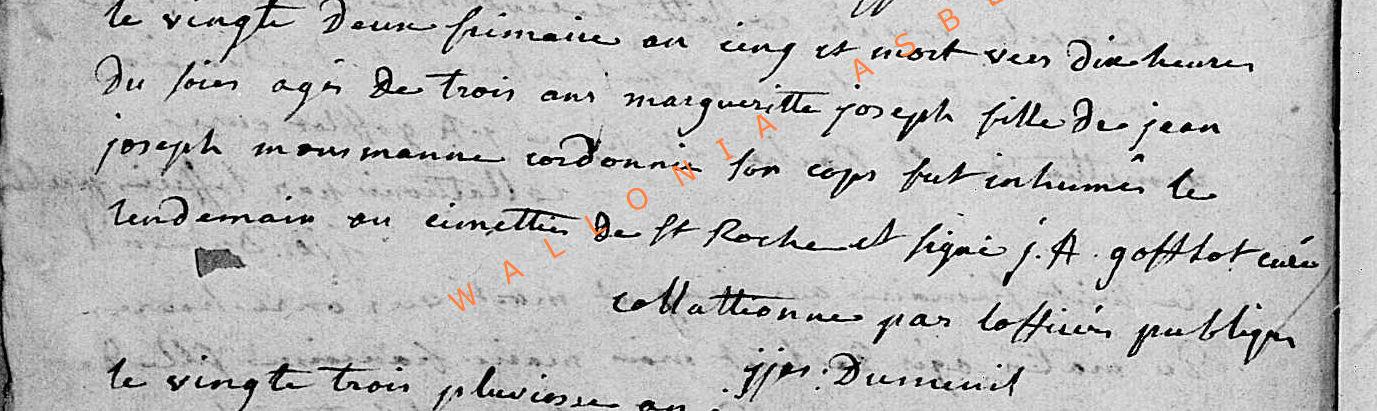 le vingte deux frimaire an cinq et mort vers dix heures
du soire agée de trois ans margueritte joseph fille de jean
joseph monsmanne cordonnie son cops fut inhumée le
lendemain au cimettier de St Roche et signé j. A. gofflot curé
collattionne par loffiéier publique
jjos: Dumenil
le vingte trois pluviosse an
WALLONIA ASBL